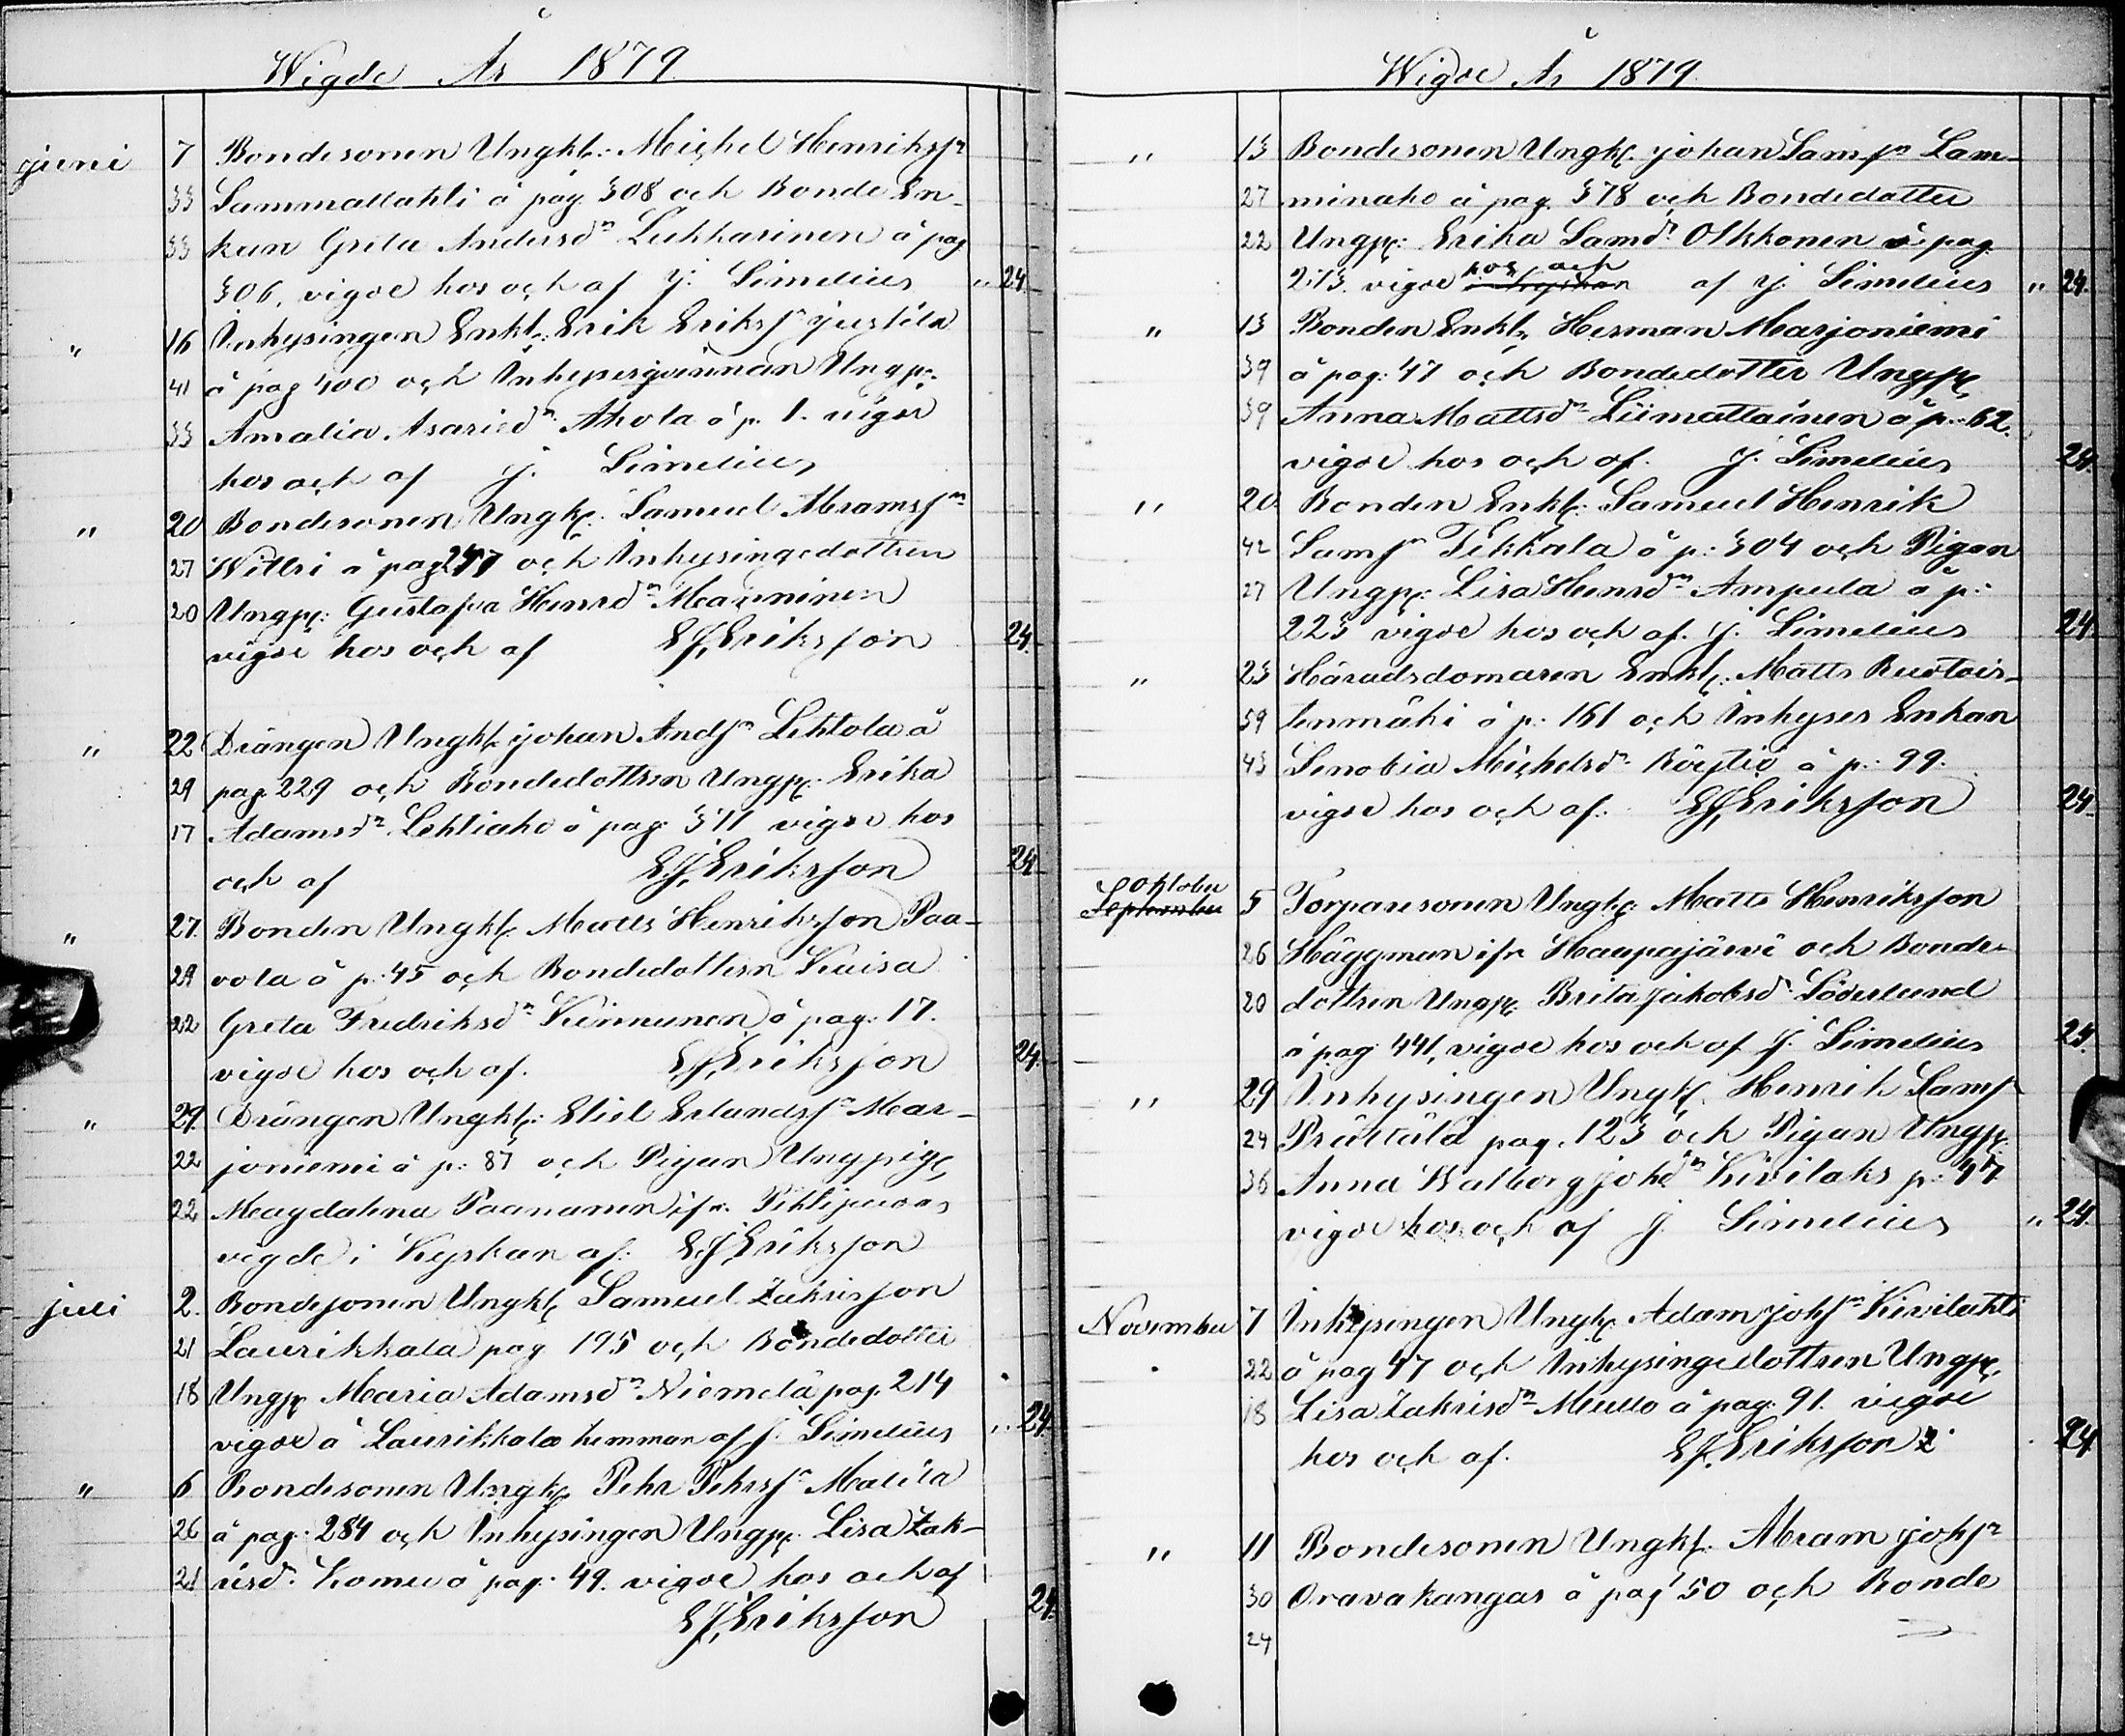 Wigde År 1879
juni 7 Bondesonen Ungkl: Michel Henriksn
33 Lammallahti å pag. 308 och Bonde En-
33 kan Greta Andersdn Lukkarinen å pag
306, vigde hos och af J. Simelius " 24.
" 16 Inhysingen Enkl: Erik Eriksn Justila
41 å pag 400 och Inhysesqvinnan Ungp:
33 Amalia Asariedn Ahola å p. 1. vigde
hos och af J. Simelius
" 20 Bondesonen Ungk: Samuel Abramsn
27 Wittri å pag 247 och Inhysingedottren
20 Ungp: Gustafva Henrdn Mauninen
vigde hos och af EJ, Eriksson 24.
" 22 Drängen Ungkl Johan Andsn Lehtola å
29 pag. 229 och Bondedottren Ungp: Erika
17 Adamsdn Lehtiaho å pag. 311 vigde hos
och af EJ, Eriksson 24
" 27. Bonden Ungkl: Matts Henriksson Paa-
29 vola å p. 45 och Bondedottren Kaisa
22 Greta Fredriksdn Kinnunen å pag. 17.
vigde hos och af. EJ, Eriksson 24.
" 29. Drängen Ungkl: Eliel Erlandsn Mar-
22 joniemi å p: 87 och Pigan Ungpig:
22 Magdalena Paananen ifr. Pihtipudas
vigde i Kyrkan af: EJ, Eriksson
juli 2. Bondesonen Ungkl: Samuel Zakrisson
21 Laurikkala pag 195 och Bondedotter
18 Ungp: Maria Adamsdn Niemelä pag. 214
vigde å Laurikkala hemman af J. Simelius " 24.
" 6 Bondesonen Ungk: Pehr Pehrsn Matila
26 å pag. 284 och Inhysingen Ungp: Lisa Zak-
21 risd. Komu å pag. 49. vigde hos och af
EJ, Eriksson 24.
Wigde År 1879.
" 13 Bondesonen Ungk: Johan Samsn Lam-
27 minaho å pag. 378 och Bondedotter
22 Ungp: Erika Samdr Olkkonen å pag.
213. vigde hos och af J. Simelius " 24.
" 13 Bonden Enkl: Herman Marjoniemi
39 å pag: 47 och Bondedotter Ungp:
39 Anna Mattsdn Liimattainen å p: 62.
vigde hos och af. J. Simelius 24
" 20. Bonden Enkl: Samuel Henrik
42 Samsn Tikkala å p: 304 och Pigan
27 Ungp: Lisa Henrsdn Ampula å p:
223 vigde hos och af. J. Simelius 24
" 23 Häradsdomaren Enkl: Matts Ruotois-
59 tenmäki å p: 161 och Inhyses Enkan
43 Senobia Michelsdn Röytiö å p: 99.
vigde hos och af: EJ, Eriksson 24.
Oktober
September 5 Torparesonen Ungk: Matts Henriksson
26 Häggman ifr Haapajärvi och Bonde-
20 dottren Ungp: Brita Jakobsd. Söderlund
å pag. 441, vigde hos och af J. Simelius 24.
" 29 Inhysingen Ungk: Henrik Samsn
24 Prättälä pag. 123 och Pigan Ungp:
36 Anna Walborg Johdn Kivilaks p: 47
vigde hos och af J. Simelius " 24.
November 7 Inhysingen Ungk: Adam Johsn Kivilahti
22 å pag 47 och Inhysingedottren Ungp:
18 Lisa Zakrisdn Mullo å pag. 91. vigde
hos och af. EJ, Eriksson 24
" 11 Bondesonen Ungkl: Abram Johsn
30 Oravakangas å pag 50 och Bonde
24